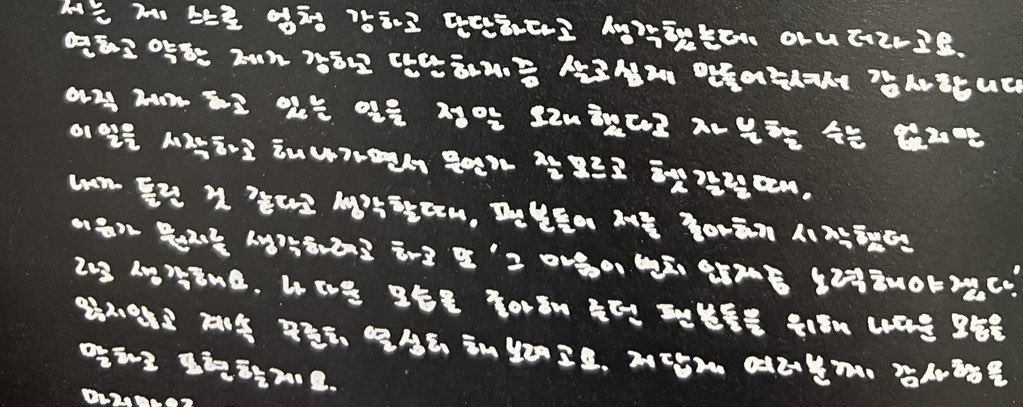 저는 제 스스로 엄청 강하고 단단하다고 생각했는데 아니더라고요.
연하고 약한 제가 강하고 단단하게끔 살고싶게 만들어주셔서 감사합니다
아직 제가 하고 있는 일을 정말 오래했다고 자부할 수는 없지만
이 일을 시작하고 해나가면서 무언가 잘 모르고 헷갈릴때,
내가 틀린 것 같다고 생각할때, 팬분들이 저를 좋아하기 시작했던
이유가 뭔지를 생각하려고 하고 또 '그 마음이 변치 않게끔 노력해야겠다'
라고 생각해요. 나 다운 모습을 좋아해 주던 팬분들을 위해 나다운 모습을
잃지않고 계속 꾸준히 열심히 해보려고요. 저답게 여러분께 감사함을
말하고 표현할게요.